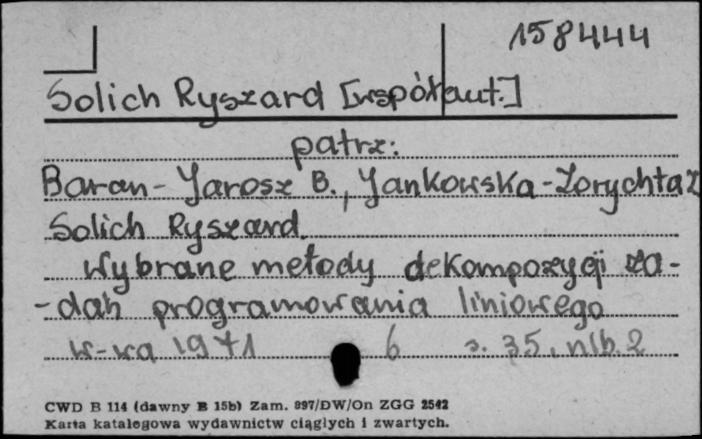 158444
Solich Ryszard [współaut.]
patrz:
Baran-Jarosz B., Jankowska-Zorychta Z
Solich Ryszard.
Wybrane metody dekompozycji za-
-dań programowania liniowego
W-wa 1971 6 s. 35, nlb. 2
CWD B 114 (dawny B 15b) Zam. 897/DW/On ZGG 2542
Karta katalogowa wydawnictw ciągłych i zwartych.